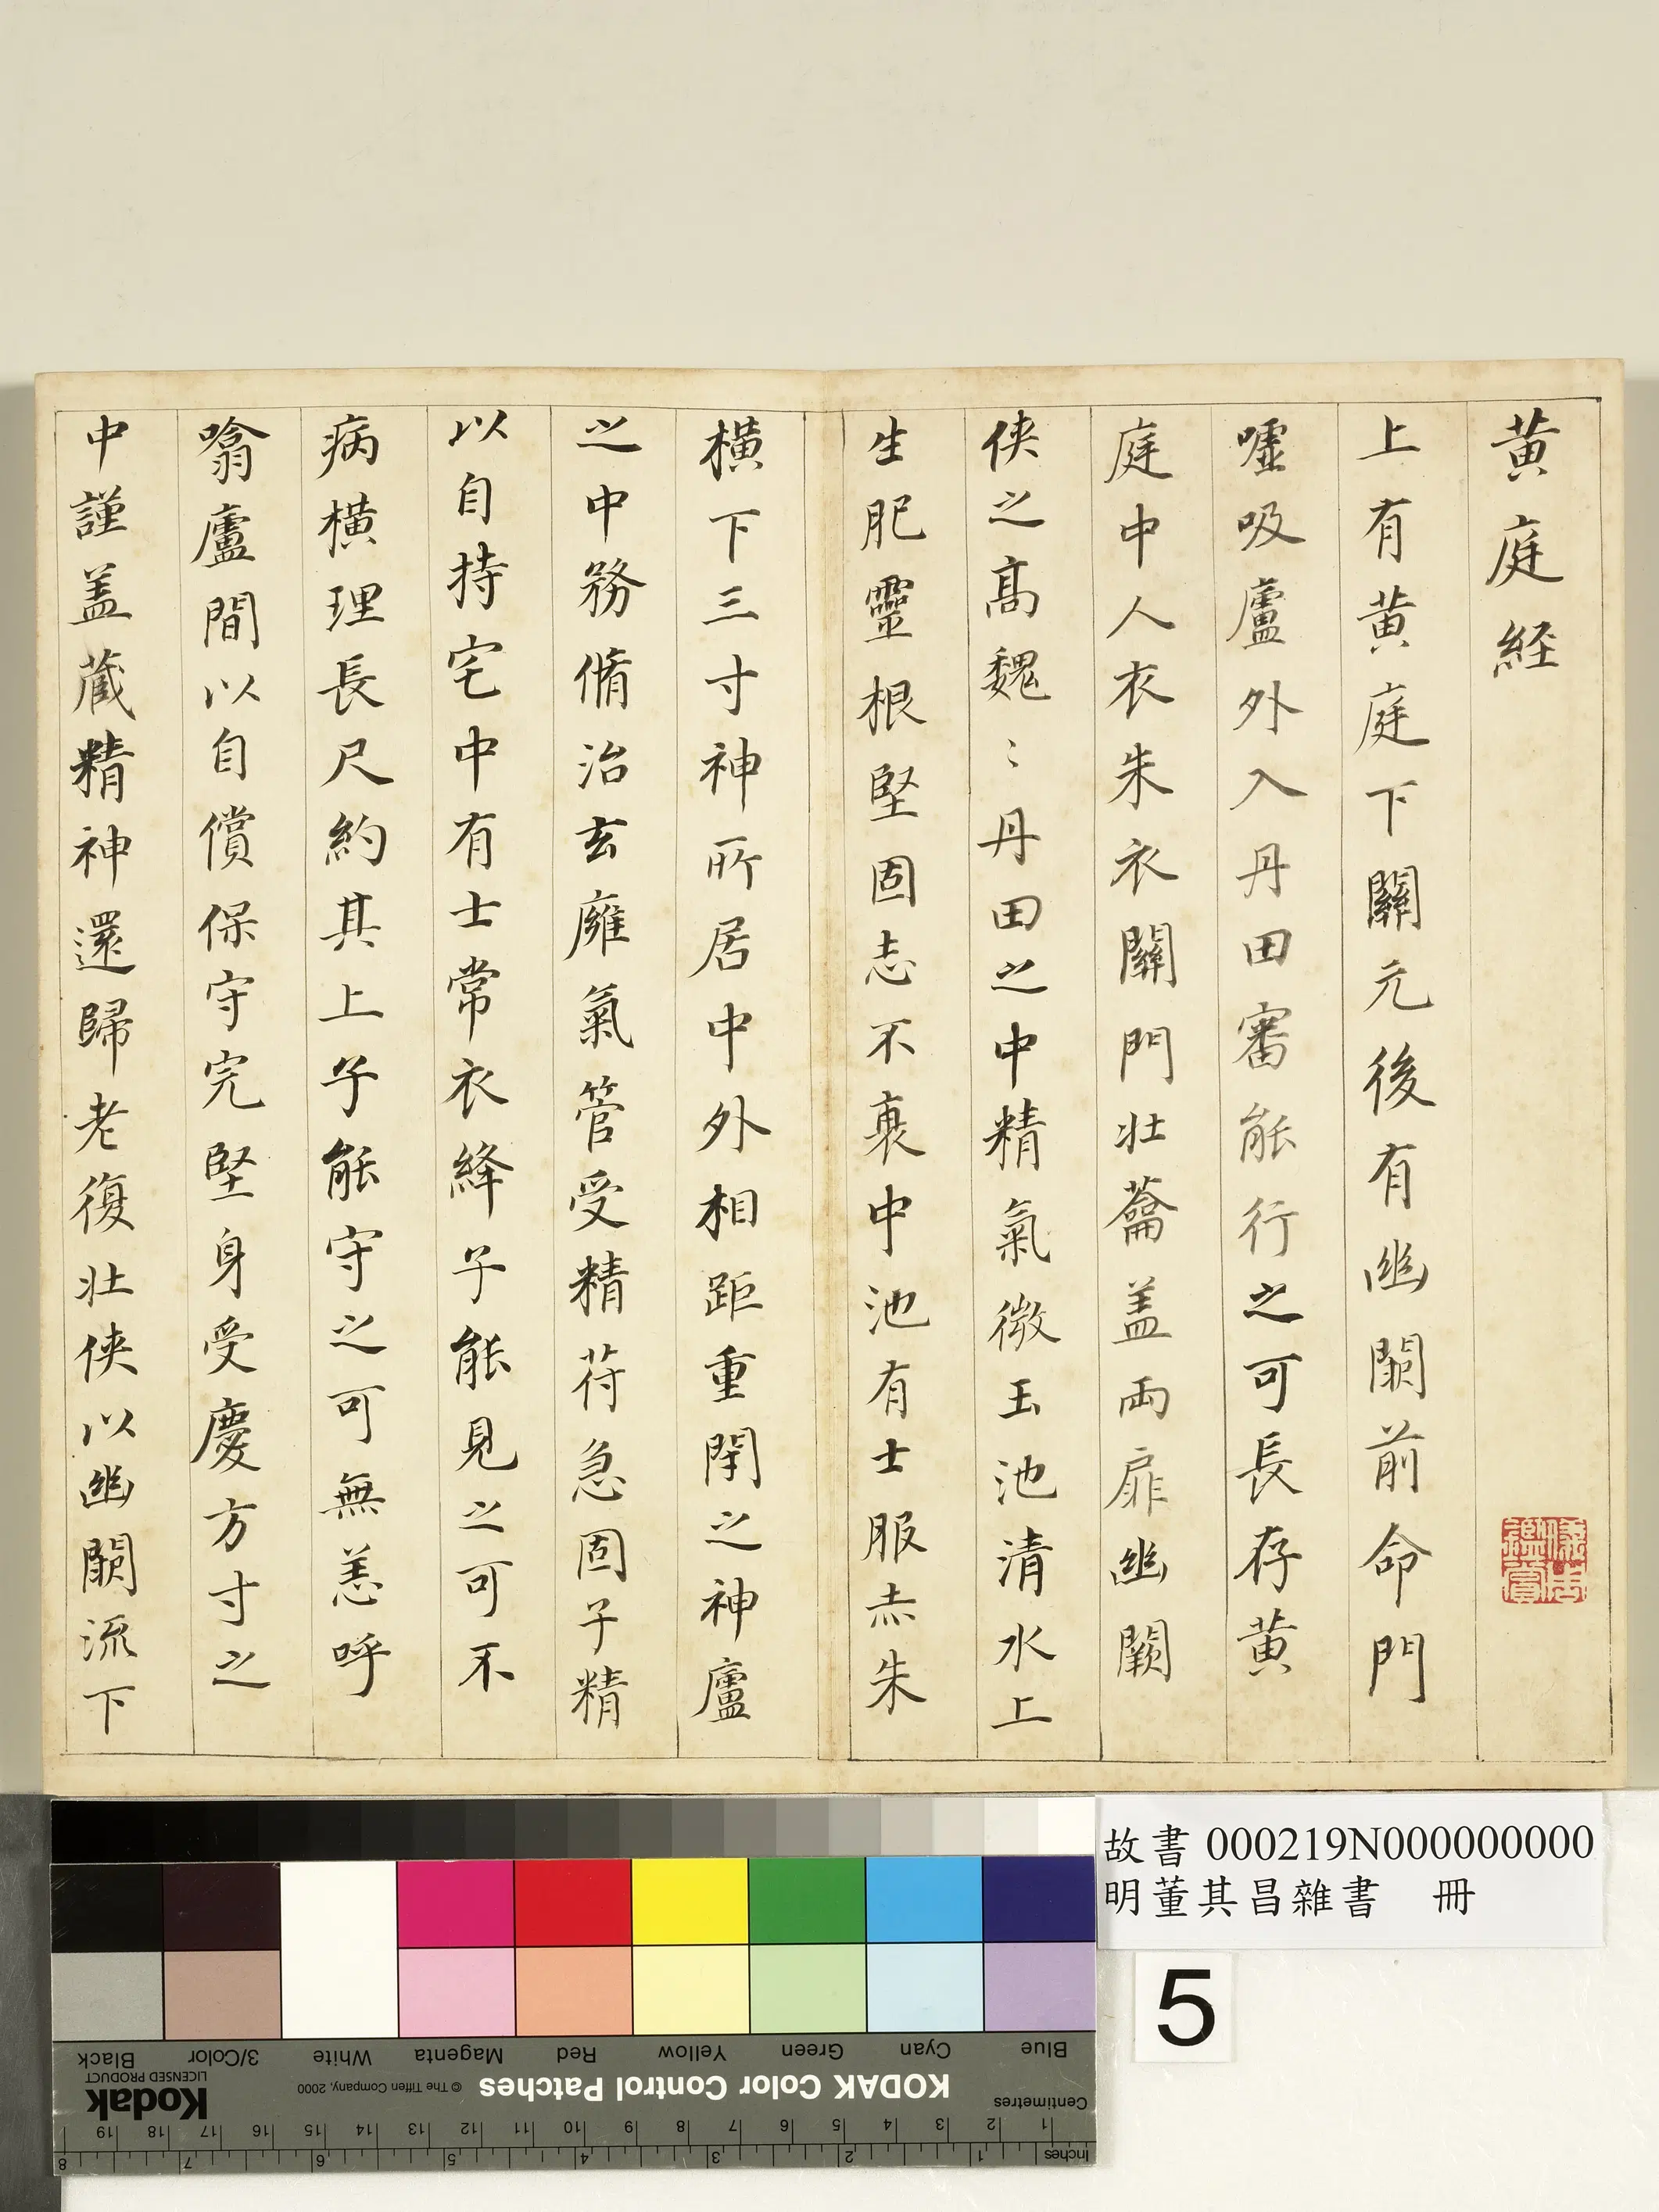 黄庭経
上有黄庭下關元後有幽闕前命門
嘘吸廬外入丹田審能行之可長存黄
庭中人衣朱衣關門壮蘥盖兩扉幽闕
侠之高魏〻丹田之中精氣微玉池清水上
生肥靈根堅固志不衰中池有士服赤朱
横下三寸神所居中外相距重閇之神廬
之中務脩治玄廱氣管受精苻急固子精
以自持宅中有士常衣絳子能見之可不
病横理長尺約其上子能守之可無恙呼
噏廬間以自償保守完堅身受慶方寸之
中謹盖蔵精神還歸老復壮侠以幽闕流下
故書 000219N000000000
明董其昌雜書 冊
5
Blue
Cyan
Green
Yellow
Red
Magenta
White
3/Color
Black
KODAK Color Control Patches
© The Tiffen Company, 2000
Kodak
LICENSED PRODUCT
Centimetres
1 2 3 4 5 6 7 8 9 10 11 12 13 14 15 16 17 18 19
Inches
1 2 3 4 5 6 7 8